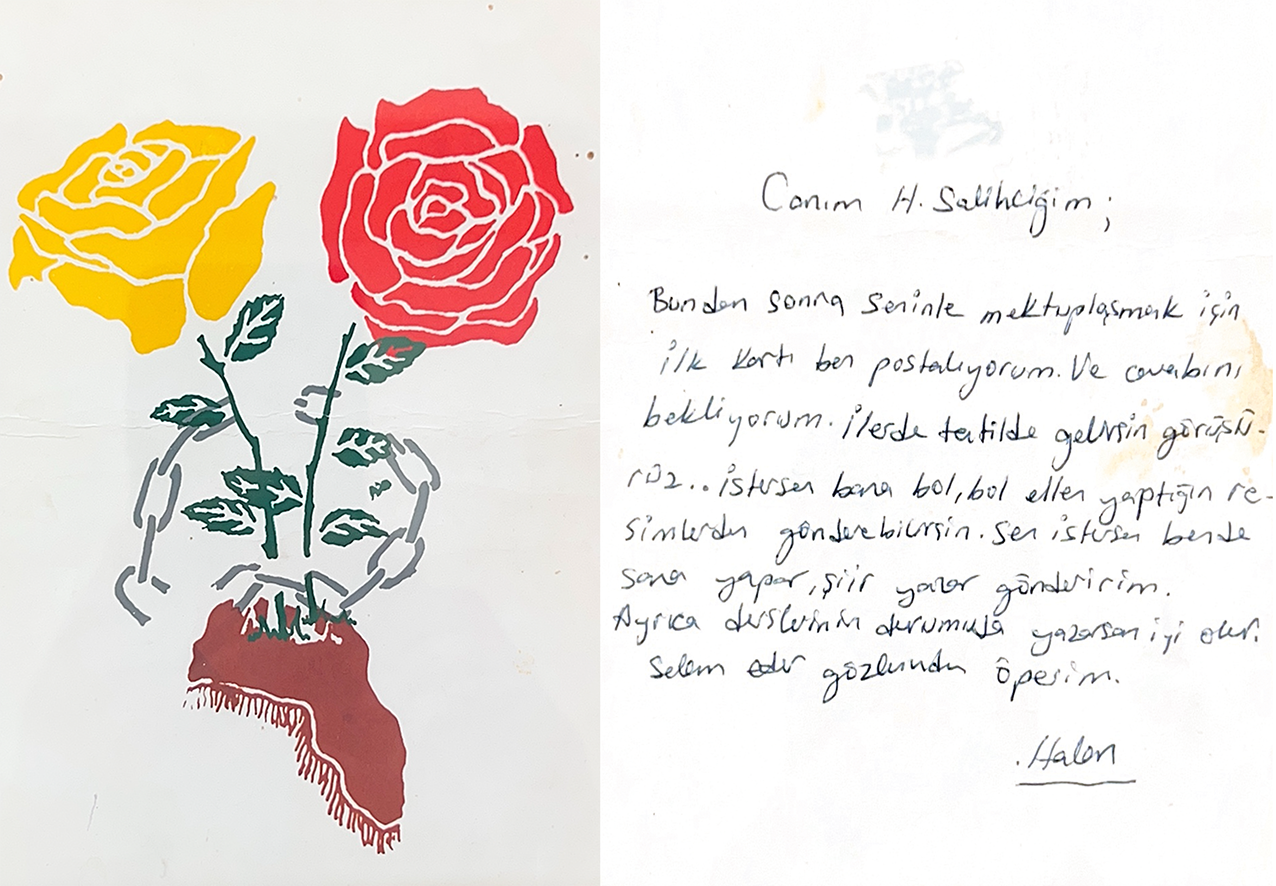 Canım H. Salihciğim;
Bundan sonra seninle mektuplaşmak için
ilk kartı ben postalıyorum. Ve cevabını
bekliyorum. İlerde tatilde gelirsin görüşü-
rüz.. istersen bana bol, bol ellen yaptığın re-
simlerden gönderebilirsin. Sen istersen bende
sana yapar, şiir yazar gönderirim.
Ayrıca derslerinin durumuda yazarsan iyi olur.
Selam eder gözlerinden öperim.
Halan